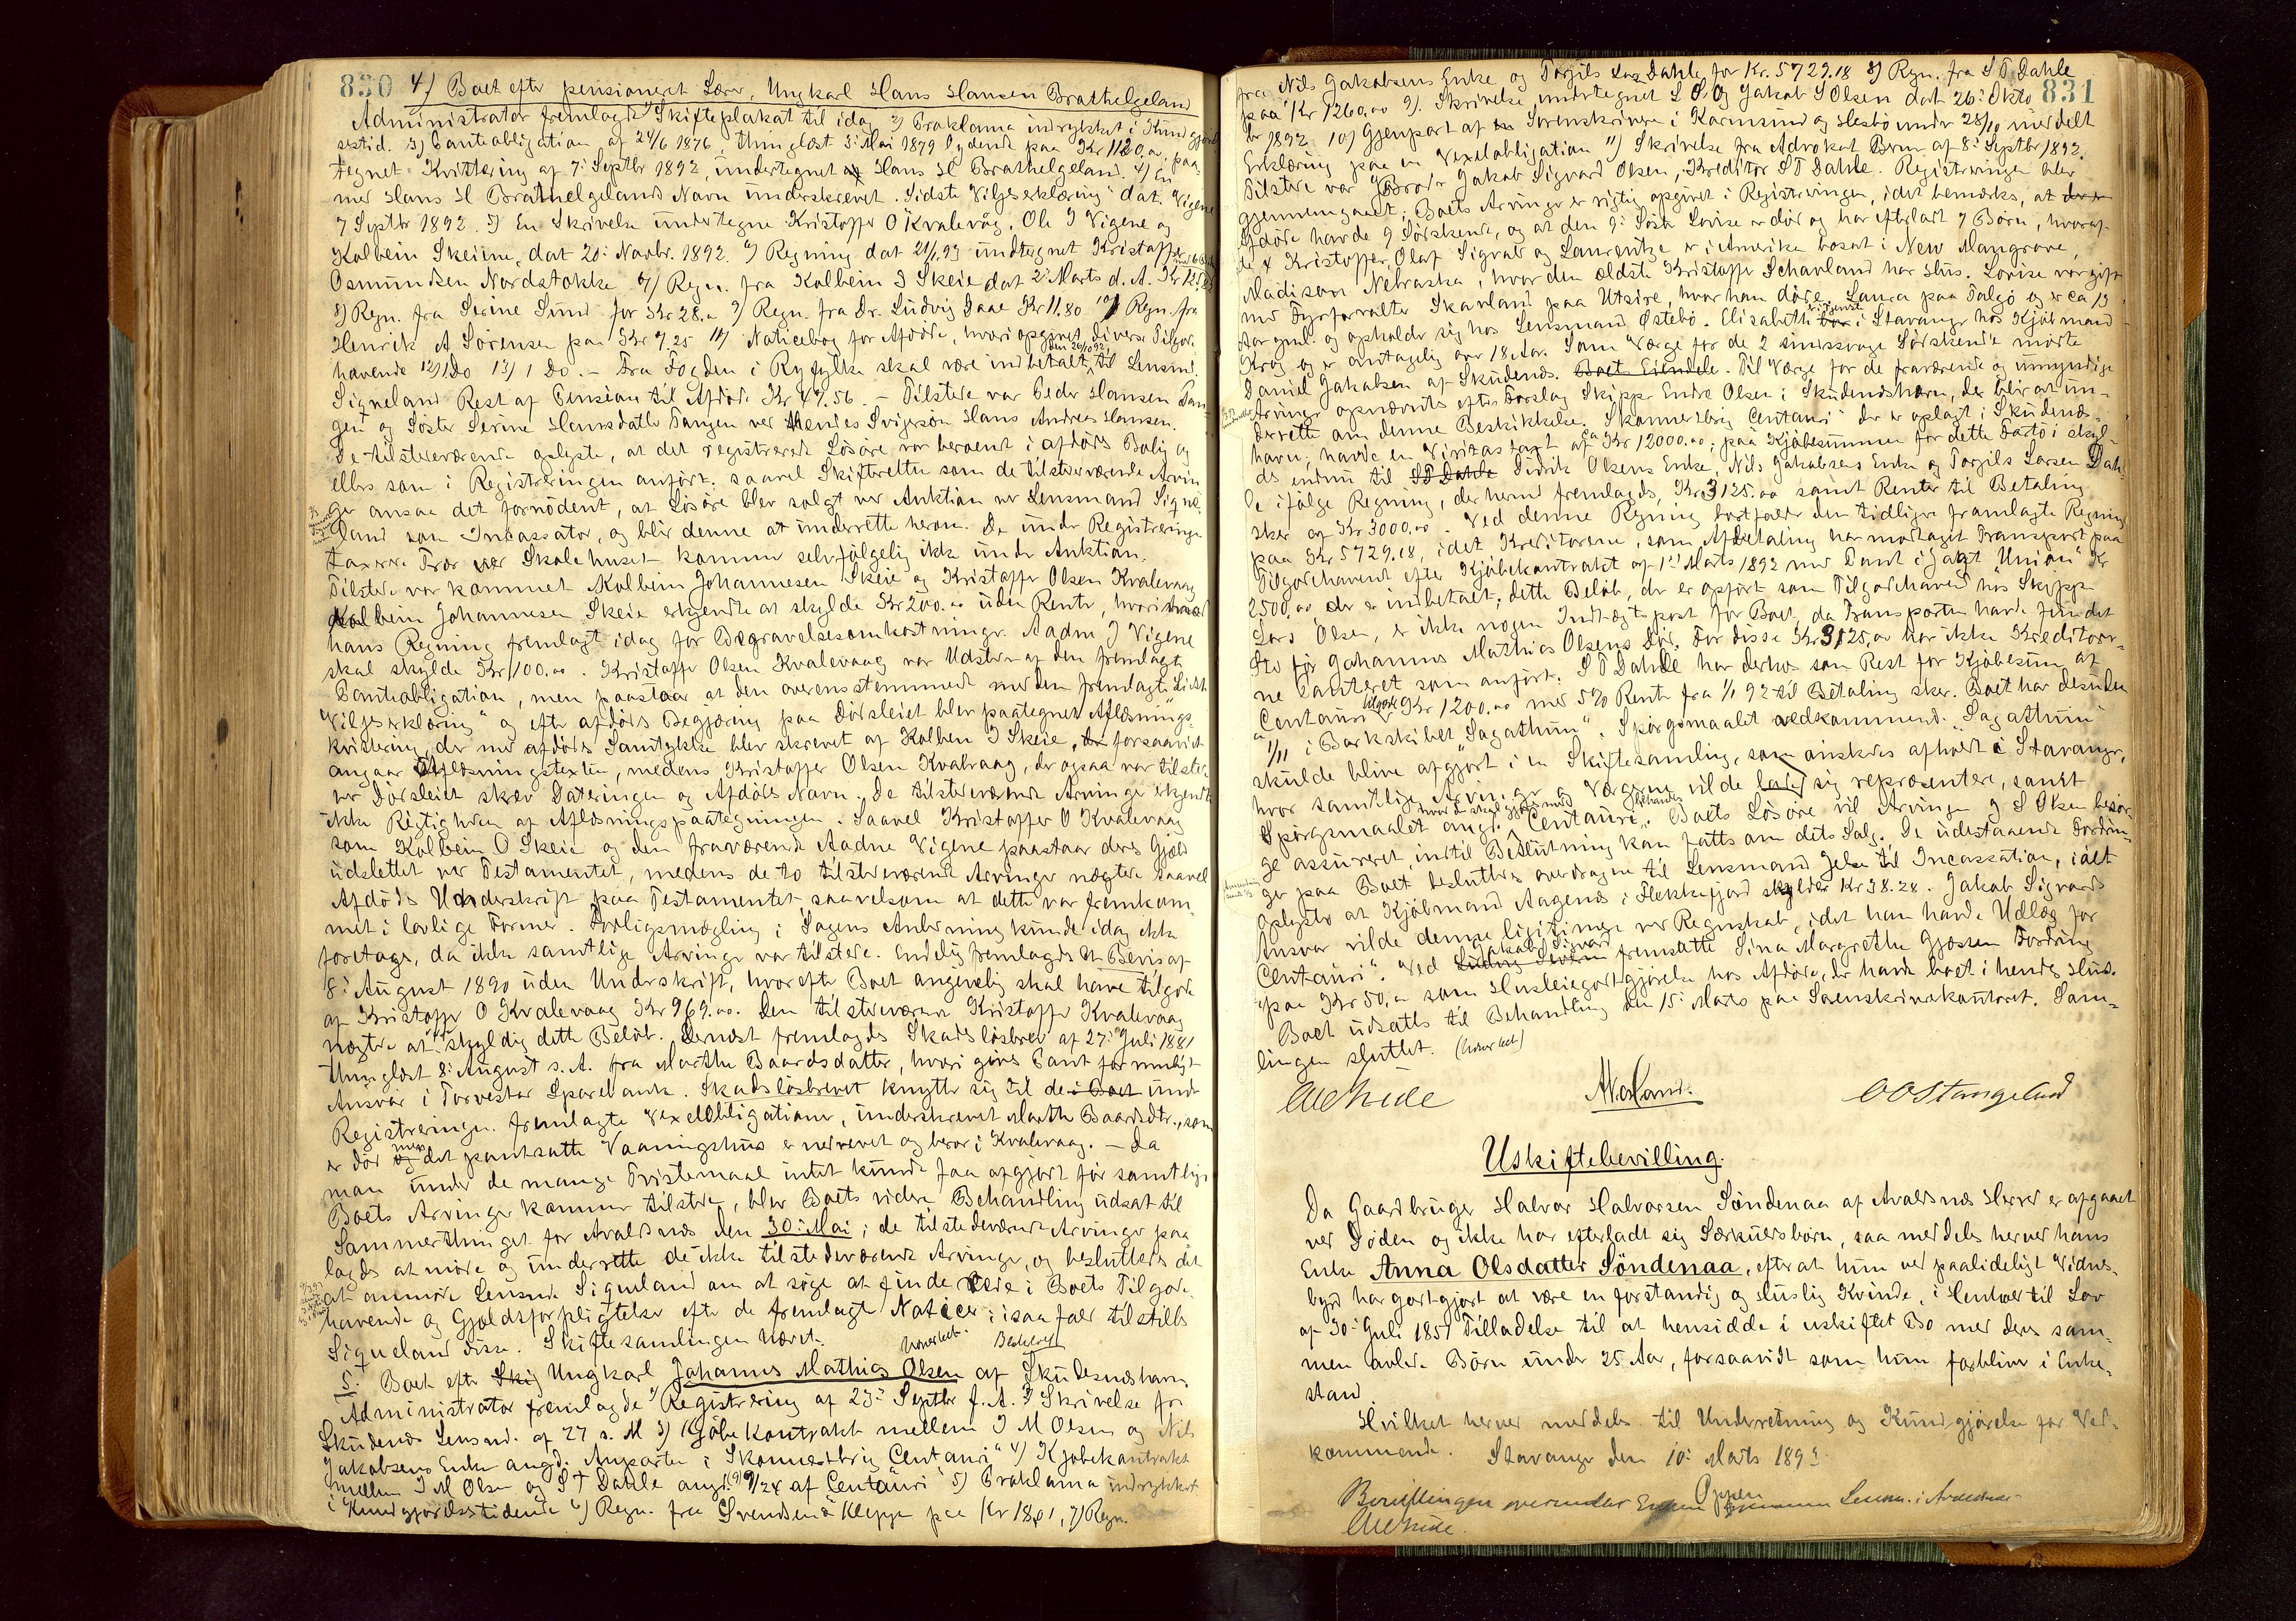 830
4) Boet efter pensioneret Lærer, Ungkarl Hans Hansen Brathelgeland
Administrator fremlagde 1) Skifteplakat til idag 2) Proklama indrykket i Kundgjørel
sestid. 3) Panteobligation af 24/6 1876, thinglæst 3. Mai 1879 lydende paa Kr 1120,00, paa-
tegnet Kvittering af 7. Septbr 1892, undertegnet Hans H Brathelgeland. 4) En
med Hans H Brathelgelands Navn underskrevet "Sidste Viljeserklæring" dat. Vigene
7 Septbr 1892. 5) En Skrivelse undertegne Kristoffer O Kvalevåg, Ole J Vigene og
Kolbein Skeiene, dat 20. Novbr. 1892. 6) Regning dat 21/1 93 undtegnet Kristoffer
Osmundsen Nordstokke 7) Regn. fra Kolbein J Skeie dat 2. Marts d. A. Kr
8) Regn. fra Serine Sund for Kr 28.00 9) Regn. fra Dr. Ludvig Daae Kr 11.80 10) Regn. fra
Henrik A Sørensen paa Kr 7.25 11) Noticebog for Afdøde, hvori opgivet diverse Tilgode
havende 12) 1 Do 13) 1 Do. - Fra Fogden i Ryfylke skal være indbetalt den 26/10 92 til Lensmd.
Siqveland Rest af Pension til Afdøde Kr 47.56. - Tilstede var Peder Hansen Tan-
gen og Søster Serine Hansdatter Tangen ved Hendes Svigersøn Hans Andreas Hansen.
De tilstedeværende oplyste, at det registrerede Løsøre var beroende i afdødes Bolig og
ellers som i Registreringen anført. saavel Skifteretten som de tilstedeværende Arvin
ger ansaa det fornødent, at Løsøre blev solgt ved Auktion ved Lensmand Siqve
land som Incassator, og blir denne at underrette herom. De under Registreringen
taxerede Trær ved Skolehuset kommer selvfølgelig ikke under Auktion.
Tilstede var kommet Kolbein Johannesen Skeie og Kristoffer Olsen Kvalevaag
Kolbein Johannesen Skeie erkjendte at skylde Kr 200.00 uden Rente, hvori
hans Regning fremlagt idag for Begravelsesomkostninger. Aadne J Vigene
skal skylde Kr 100,00. Kristoffer Olsen Kvalevaag var Udsteder af den fremlagte
Panteobligation, men paastaar at den overensstemmende med den fremlagte "Sidste
Viljeserklæring" og efter afdødes Begjæring paa Dødsleiet blev paategnet Aflæsnings-
kvittering, der med afdødes Samtykke blev skrevet af Kolbein J Skeie, forsaavidt
angaar Aflæsningstexten, medens Kristoffer Olsen Kvalvaag, der ogsaa var tilstede
ved Dødsleiet skrev Dateringen og Afdødes Navn. De tilstedeværende Arvinger erkjendte
ikke Rigtigheden af Aflæsningspaategningen. Saavel Kristoffer O Kvalevaag
som Kolbein O Skeie og den fraværende Aadne Vigene paastaar deres Gjæld
udslettet ved Testamentet, medens de to tilstedeværende Arvinger nægtede saavel
Afdøds Underskrift paa Testamentet, saavelsom at dette var fremkom-
met i lovlige Former. Forligsmægling i Sagens Anledning kunde idag ikke
foretages, da ikke samtlige Arvinger var tilstede. Endelig fremlagdes et Bevis af
8. August 1890 uden Underskrift, hvorefter Boet angivelig skal have tilgode
af Kristoffer O Kvalevaag Kr 969.00. Den tilstedeværende Kristoffer Kvalevaag
nægtede at skyldig dette Beløb. Dernæst fremlagdes Skadesløsbrev af 27. Juli 1881
thinglæst 8. August s. A. fra Marthe Baardsdatter, hvori gives Pant for muligt
Ansvar i Torvestad Sparebank. Skadesløsbrevet knytter sig til de i Boet under
Registreringen fremlagte Vexelobligationer, underskrevet Marthe Baardsdtr., som
er død men det pantsatte Vaaningshus er nedrevet og beror i Kvalevaag. - Da
man under de mange Tvistemaal intet kunde faa afgjort før samtlige
Boets Arvinger kommer tilstede, blev Boets videre Behandling udsat til
Sommerthinget for Avaldsnes den 30. Mai; de tilstedeværende Arvinger paa
lagdes at møde og underrette de ikke tilstedeværende Arvinger, og besluttedes det
at anmode Lensmd. Siqveland om at søge at finde Rede i Boets Tilgode-
havende og Gjældsforpligtelser efter de fremlagte Noticer; i isaafald tilstilles
Siqveland disse. Skiftesamlingen hævet.
5. Boet efter Skip Ungkarl Johannes Mathias Olsen af Skudesneshavn
Administrator fremlagde 1) Registrering af 23. Septbr f. A. 2) Skrivelse fra
Skudenes Lensmd. af 27 s. M 3) Kjøbekontrakt mellem J M Olsen og Nils
Jakobsens Enke angd. Anparter i Skonnertbrig "Centauri" 4) Kjøbekontrakt
mellem J M Olsen og S T Dahle angd. 9/24 af "Centauri" 5) Proklama indrykket
i Kundgjørelsestidende 6) Regn. fra Svendsen & Kleppe paa Kr 18,01, 7) Regn.
831
fra Nils Jakobsens Enke og Torgils Lars Dahle for Kr. 5729.18 8) Regn. fra S T Dahle
paa Kr 1260,00 9) Skrivelse undertegnet L O. og Jakob S Olsen dat 26. Okto
br 1892 10) Gjenpart af Sorenskriveren i Karmsund og Hesbø under 28/10 meddelt
Erklæring paa en Vexelobligation 11) Skrivelse fra Advokat Brun af 8. Septbr 1892.
Tilstede var Broder Jakob Sigvard Olsen, Kreditor S T Dahle. Registreringen blev
gjennemgaaet; Boets Arvinger er rigtig opgivet i Registreringen, idet bemærkes, at der er
Afdøde havde 9 Søskende, og at den 9. Søster Lovise er død og har efterladt 7 Børn, hvoraf
de 4 Kristoffer, Olaf Sigvald og Laurentze er i Amerika bosat i New Mangrove,
Madison Nebraska, hvor den ældste Kristoffer Schavland har Hus. Lovise var gift
med Fyrforvalter Skavland paa Utsire, hvor han døde. Laura paa Talgø og er ca 19
Aar gml. og opholder sig hos Lensmand Østebø. Elisabeth tjenende i Stavanger hos Kjøbmand
Krog og er antagelig over 18 Aar. Som Værge for de 2 sindssvage Søskende mødte
Daniel Jakobsen af Skudenes. Boet Eiendele. Til Værge for de fraværende og umyndige
Arvinger opnævntes efter Forslag Skipper Endre Olsen i Skudeneshavn, der blir at un-
derrette om denne Beskikkelse. Skonnertbrig "Centauri" der er oplagt i Skudenes-
havn; havde en Viritastaxt af ca Kr 12000.00; paa Kjøbesummen for dette Fartøi skyl-
des endnu til S T Dahle Didrik Olsens Enke, Nils Jakobsens Enke og Torgils Larsen Dah
le ifølge Regning, der hermed fremlagdes, Kr 3125.00 samt Renter til Betaling
sker af Kr 3000.00. Ved denne Regning bortfalder den tidligere fremlagte Regning
paa Kr 5729.18, idet Kreditorene, som Afbetaling har modtaget Transport paa
Tilgodehavende efter Kjøbekontrakt af 1. Marts 1892 med Pant i Jagt "Union" Kr
2500,00 der er indbetalt; dette Beløb, der er opført som Tilgodehavende hos Skipper
Lars Olsen, er ikke nogen Indtægtspost for Boet, da Transporten havde fundet
Sted før Johannes Mathias Olsens Død. For disse Kr 3125,00 har ikke Kreditorer-
ne panteret som anført. S T Dahle har derhos som Rest for Kjøbesum af
"Centauri" tilgode Kr 1200.00 med 5% Rente fra 1/1 92 til Betaling sker. Boet har desuden
1/11 i Barkskibet "Sagathun". Spørgsmaalet vedkommende "Sagathun"
skulde blive afgjort i en Skiftesamling, som ønskedes afholdt i Stavanger,
hvor samtlige Arvinger og Værgerne vilde lade sig repræsentere, samt
Spørgsmaalet angd. hvad der skal gjøres med "Centauri" behandles. Boets Løsøre vil Arvingen J S Olsen besør-
ge assureret, indtil Beslutning kan fattes om dets Salg. De udestaaende Fordrin-
ger paa Boet besluttes overdragne til Lensmand Jelsa til Incassation, ialt
oplystes at Kjøbmand Aagenæs i Flekkefjord skylder Kr 38.28. Jakob Sigvards
Ansvar vilde denne ligitimere ved Regnskab, idet han havde Udlæg for
"Centauri". Ved Ludvig Severin Jakob Sigvard fremsatte Sina Margrethe Gjøsen Fordring
paa Kr 50,00 som Husleiegodtgjørelse hos Afdøde, der havde boet i hendes Hus.
Boet udsattes til Behandling den 15. Marts paa Sorenskriverkontoret. Sam-
lingen sluttet.
O O Stangeland
Uskiftebevilling.
Da Gaardbruger Halvor Halvorsen Søndenaa af Avaldsnes Herred er afgaaet
ved Døden og ikke har efterladt sig Særkulsbørn, saa meddeles herved hans
Enke Anna Olsdatter Søndenaa, efterat hun ved paalideligt Vidnes-
byrd har godtgjort at være en forstandig og huslig Kvinde, i Henhold til Lov
af 30. Juli 1851 Tilladelse til at hensidde i uskiftet Bo med deres sam-
men avlede Børn under 25 Aar, forsaavidt som hun forbliver i Enke-
stand
Hvilket herved meddeles til Underretning og Kundgjørelse for Ved-
kommende. Stavanger den 10. Marts 1893.
Bevillingen Enken Lensm. i Avaldsnes